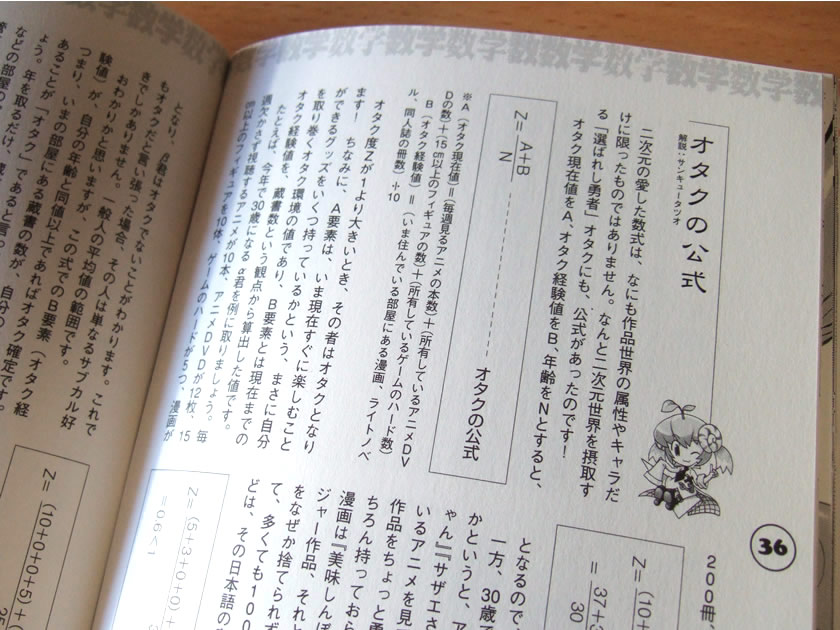 数学数学数学数学数学数学数学数
36
オタクの公式
解説:サンキュータツオ
二次元の愛した数式は、なにも作品世界の属性やキャラだ
けに限ったものではありません。なんと二次元世界を摂取す
る「選ばれし勇者」オタクにも、公式があったのです!
オタク現在値をA、オタク経験値をB、年齢をNとすると、
Z= A+B
N
オタクの公式
※A(オタク現在値)=(毎週見るアニメの本数)+(所有しているアニメDV
Dの数)+(15㎝以上のフィギュアの数)+(所有しているゲームのハード数)
B(オタク経験値)=(いま住んでいる部屋にある漫画、ライトノベ
ル、同人誌の冊数)÷10
オタク度Zが1より大きいとき、その者はオタクとなり
ます! ちなみに、A要素は、いま現在すぐに楽しむこと
ができるグッズをいくつ持っているかという、まさに自分
を取り巻くオタク環境の値であり、B要素とは現在までの
オタク経験値を、蔵書数という観点から算出した値です。
たとえば、今年で30歳になるα君を例に取りましょう。毎
週欠かさず視聴するアニメが10本、アニメDVDが12枚、15
㎝以上のフィギュアを10体、ゲームのハードが5つ、漫画が
200冊、
Z= (10+
= 37+3
30
となるので
一方、30歳で
かというと、ア
ゃん』『サザエさ
いるアニメを見
作品をちょっと勇
ちろん持ってお
漫画は『美味しんぼ
ジャー作品、それと
をなぜか捨てられず
て、多くても100
どは、その日本語の
Z= (5+3+0+0)+
=0.6<1
となり、β君はオタクでないことがわかります。これで
もオタクだと言い張った場合、その人は単なるサブカル好
きでしかありません。一般人の平均値の範囲です。
おわかりかと思いますが、この式でのB要素(オタク経
験値)が、自分の年齢と同値以上であればオタク確定です。
つまり、いまの部屋にある蔵書の数が、自分の
あることが「オタク」であると言
ょう。年を取るだけ、
などの部屋の
Z= (10+0+0+5)+(
25